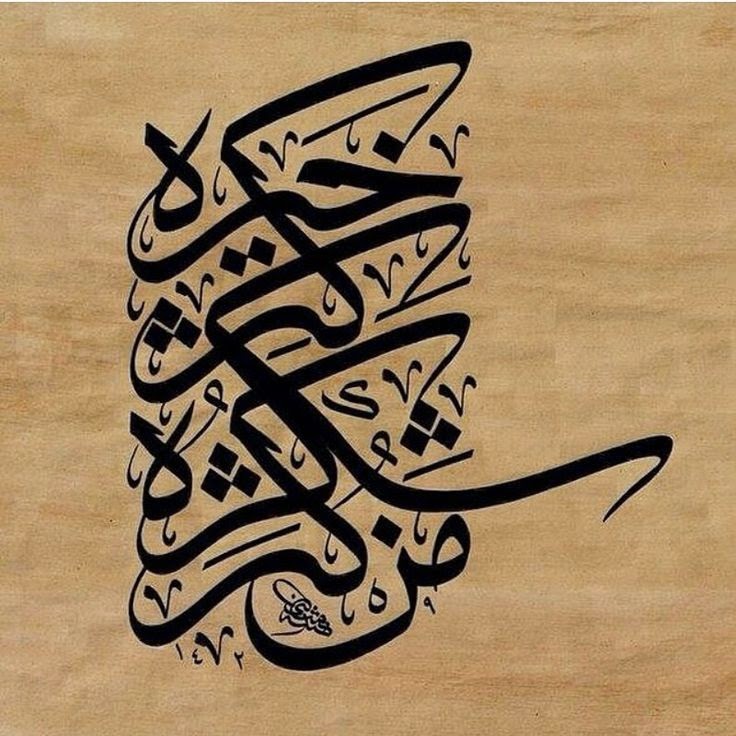 من كثر
شكره
كثر
خيره
١٤٢٩